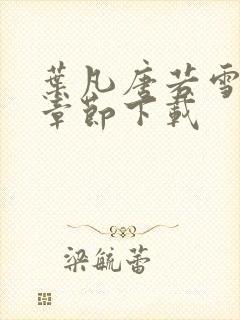 葉凡唐若雪
章節下載
梁毓蕾